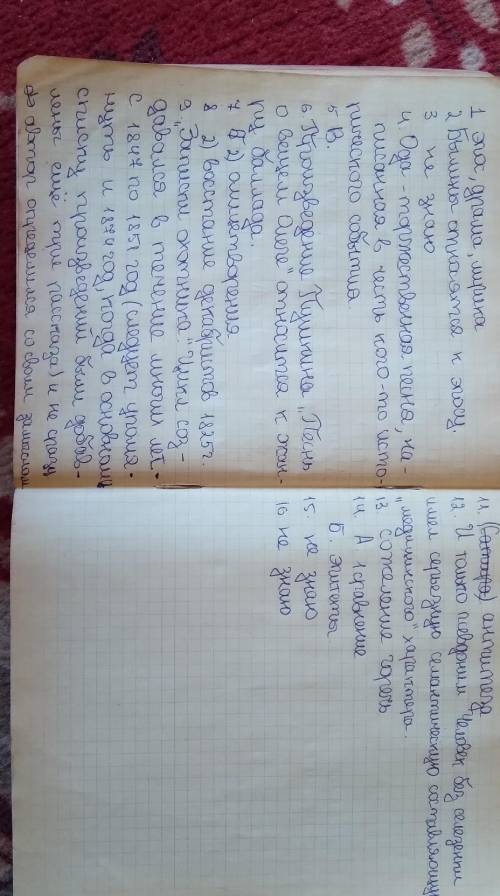 1 эпа, драма, лирика
2 Былины относятся к эпосу.
3 не знаю
4. Ода - торжественная песня, на-
писанная в честь кого-то исто-
рического события
5 В.
6. Произведение Пушкина "Песнь
о вещем Олеге" относится к жан-
ру баллада.
7 2) олицетворения
8 2) восстание декабристов 1825г.
9. "Записки охотника". Цикл соз-
давался в течение многих лет -
с 1847 по 1851 год (следует упомя-
нуть и 1874 год, когда в основному
списку произведений были добав-
лены ещё три рассказа) и не сразу
автор определился со своим
11. антитеза
12. И только псевдоним "Человек без селезёнки"
имел серьёзную семантическую составляющую
"медицинского" характера.
13 сожеление горечь
14. А. 1 сравнение
Б. эпитеты.
15. не знаю
16 не знаю